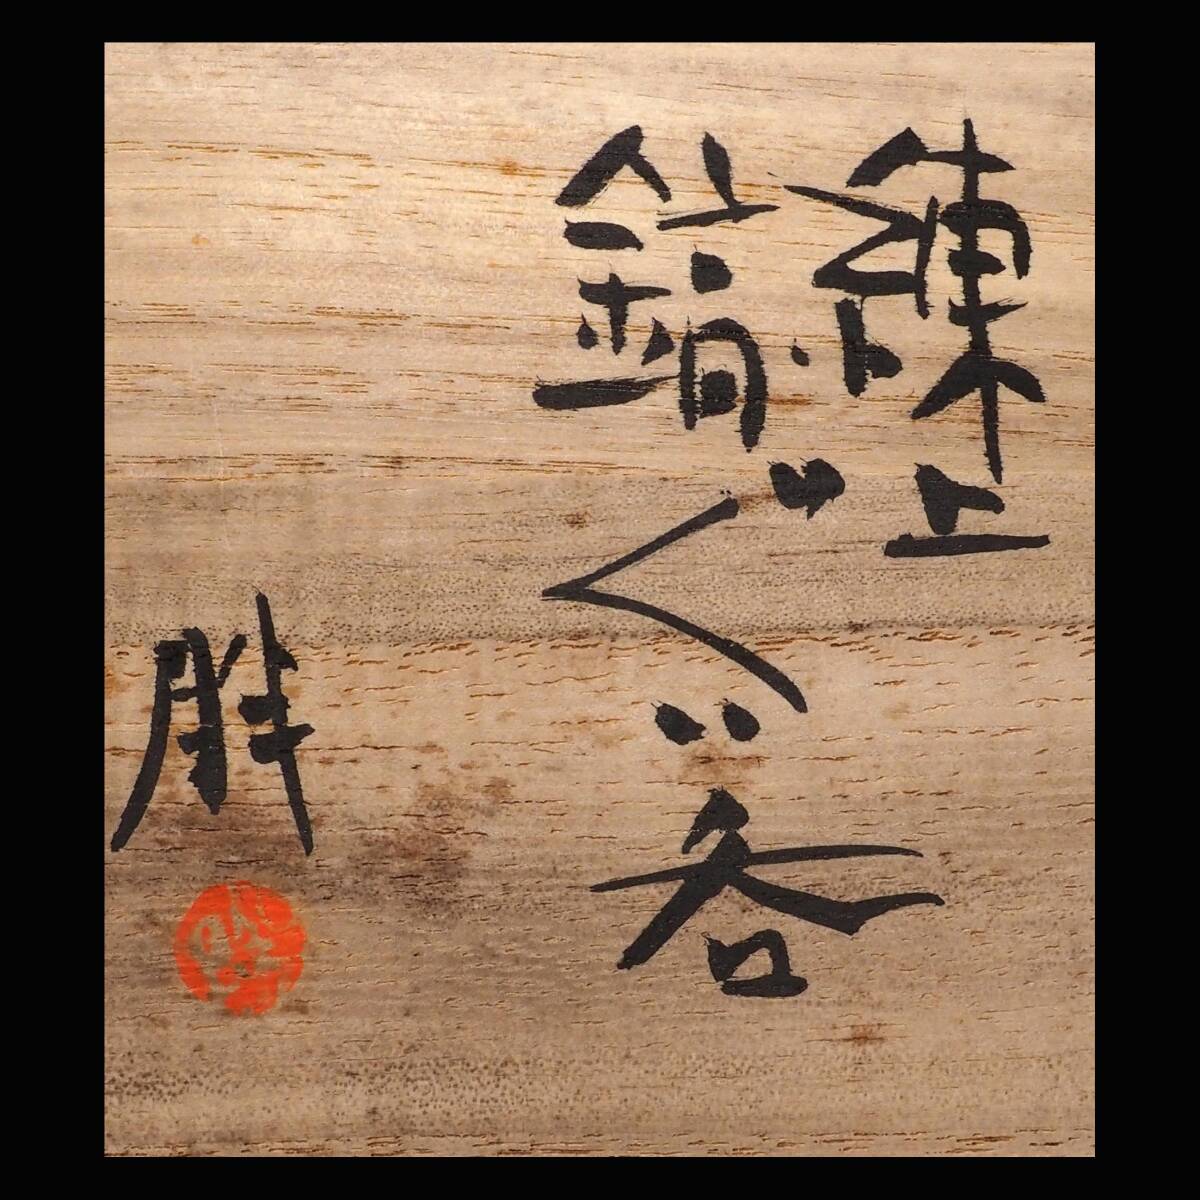 練上
鎬ぐい呑
胖